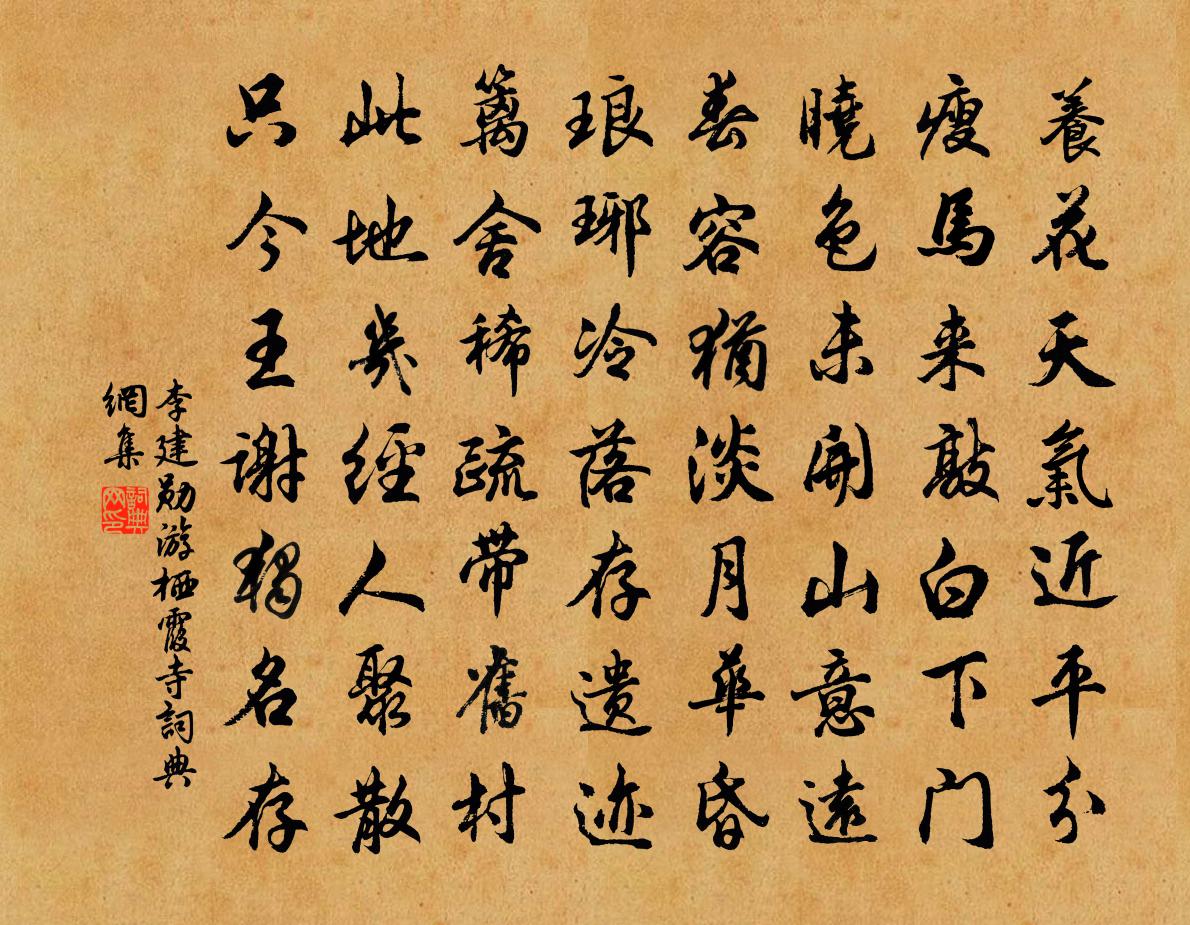 養花天氣近平分
瘦馬来敲白下門
曉色未開山意遠
春容猶淡月華昏
琅琊冷落存遗迹
籬舍稀疏带舊村
此地幾經人聚散
只今王謝獨名存
李建勛游栖霞寺詞典
網集
詞典
网印